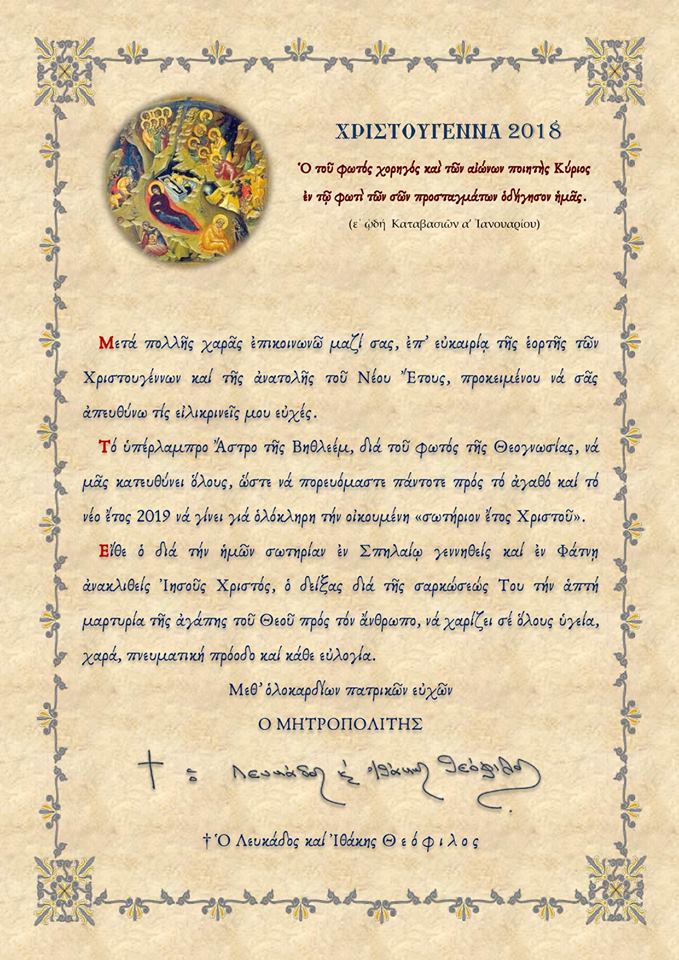 ΧΡΙΣΤΟΥΓΕΝΝΑ 2018
Ὁ τοῦ φωτός χορηγός καὶ τῶν αἰώνων ποιητὴς Κύριος
ἐν τῷ φωτὶ τῶν σῶν προσταγμάτων ὁδήγησον ἡμᾶς.
(ε΄ ᾠδή Καταβασιῶν α’ Ἰανουαρίου)
Μετά πολλῆς χαρᾶς ἐπικοινωνῶ μαζί σας, ἐπ’ εὐκαιρίᾳ τῆς ἑορτῆς τῶν
Χριστουγέννων καί τῆς ἀνατολῆς τοῦ Νέου Ἔτους, προκειμένου νά σᾶς
ἀπευθύνω τίς εἰλικρινεῖς μου εὐχές.
Τό ὑπέρλαμπρο Ἄστρο τῆς Βηθλεέμ, διά τοῦ φωτός τῆς Θεογνωσίας, νά
μᾶς κατευθύνει ὅλους, ὥστε νά πορευόμαστε πάντοτε πρός τό ἀγαθό καί τό
νέο ἔτος 2019 νά γίνει γιά ὁλόκληρη τήν οἰκουμένη «σωτήριον ἔτος Χριστοῦ».
Εἴθε ὁ διά τήν ἡμῶν σωτηρίαν ἐν Σπηλαίῳ γεννηθείς καί ἐν Φάτνῃ
ἀνακλιθείς Ἰησοῦς Χριστός, ὁ δείξας διά τῆς σαρκώσεώς Του τήν ἁπτή
μαρτυρία τῆς ἀγάπης τοῦ Θεοῦ πρός τόν ἄνθρωπο, νά χαρίζει σέ ὅλους ὑγεία,
χαρά, πνευματική πρόοδο καί κάθε εὐλογία.
Μεθ’ ὁλοκαρδίων πατρικῶν εὐχῶν
Ο ΜΗΤΡΟΠΟΛΙΤΗΣ
† ὁ Λευκάδος κ̀ Ἰθάκης Θεόφιλος
† Ὁ Λευκάδος καί Ἰθάκης Θ ε ό φ ι λ ο ς